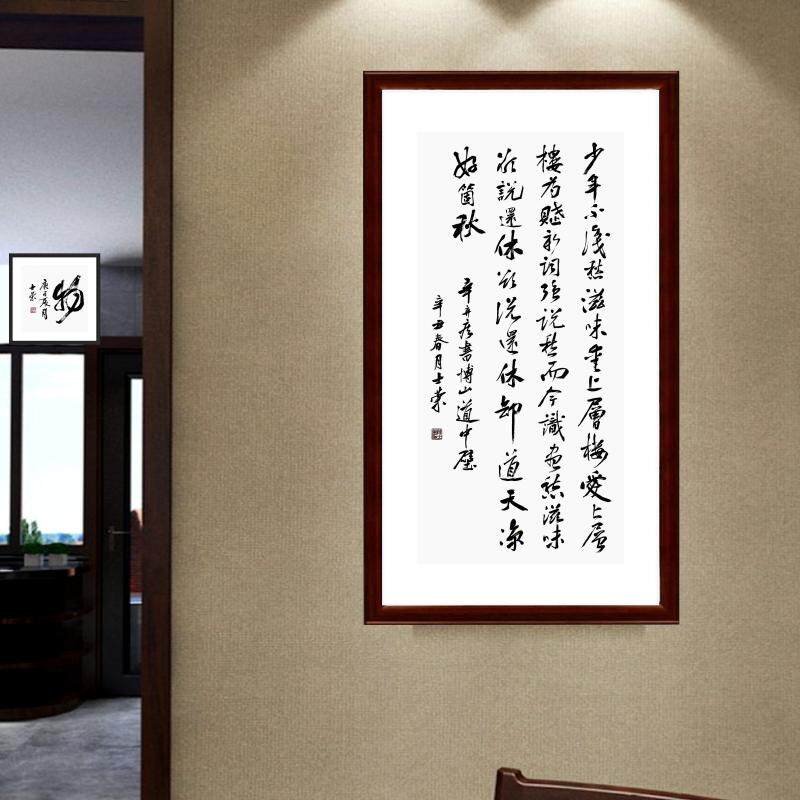 少年不識愁滋味愛上層樓愛上層
樓為賦新詞強說愁而今識盡愁滋味
欲說還休欲說還休卻道天涼
好箇秋
辛弃疾書博山道中壁
辛丑春月士荣
物
士荣